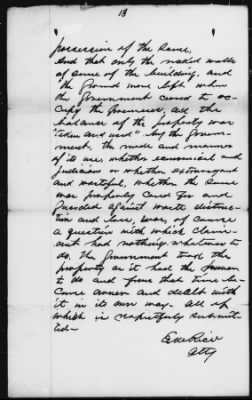 13
possession of the same,
And that only the naked walls
of some of the building, and
the ground were left when
the Government ceased to oc-
cupy the premises, all the
balance of the property was
"taken and used" by the Govern-
ment, the mode and manner
of its use, whether economical and
judicious or whether extravagant
and wasteful, whether the same
was properly cared for and
guarded against waste destruc-
tion and loss, was, of course
a question with which claim-
ant had nothing whatever to
do, The Government took the
property as it had the power
to do and from that time be-
came owner and dealt with
it in its own way. All of
which is respectfully submit-
ted-
Atty